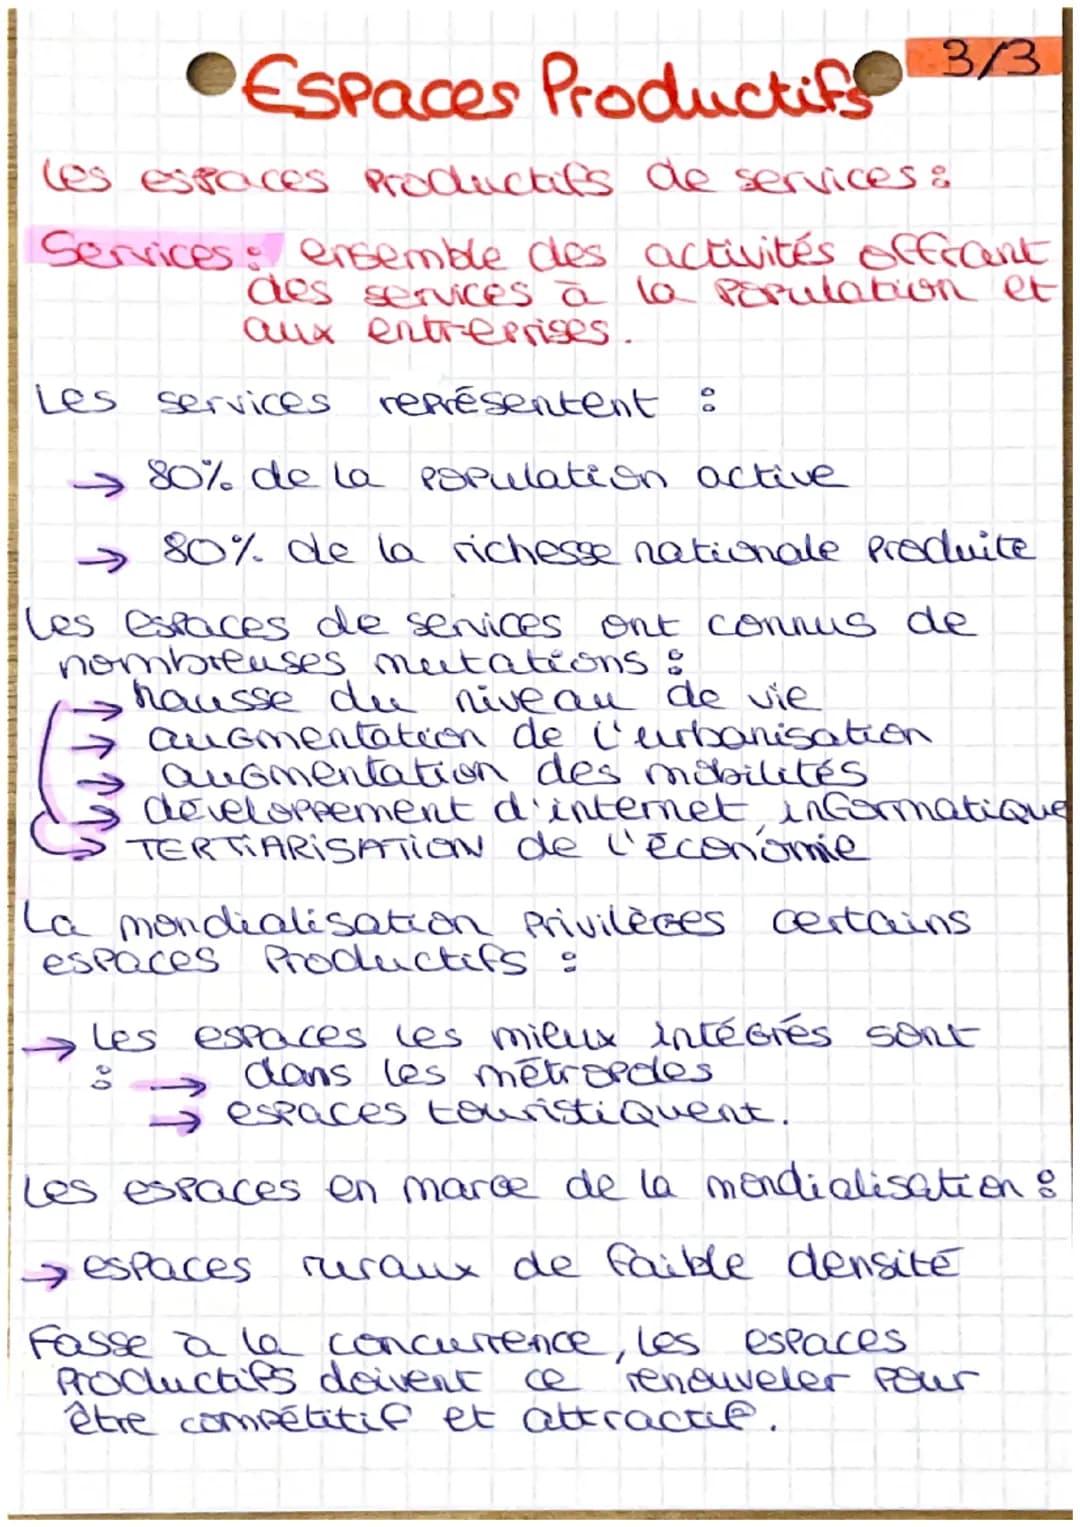 3/3
Espaces Productifs
Les espaces productifs de services :
Services : ensemble des activités offrant
des services à la population et
aux entreprises.
Les services représentent :
→ 80% de la population active
→ 80% de la richesse nationale produite
Les espaces de services ont connus de
nombreuses mutations :
→ hausse du niveau de vie
→ augmentation de l'urbanisation
→ augmentation des mobilités
→ développement d'internet, informatique
→ TERTiARiSATiON de l'économie
La mondialisation privilèges certains
espaces productifs :
→ Les espaces les mieux intégrés sont
: → dans les métropoles
→ espaces touristiquent.
Les espaces en marge de la mondialisation :
→ espaces ruraux de faible densité
Fasse à la concurrence, les espaces
productifs doivent ce renouveler pour
être compétitif et attractif.